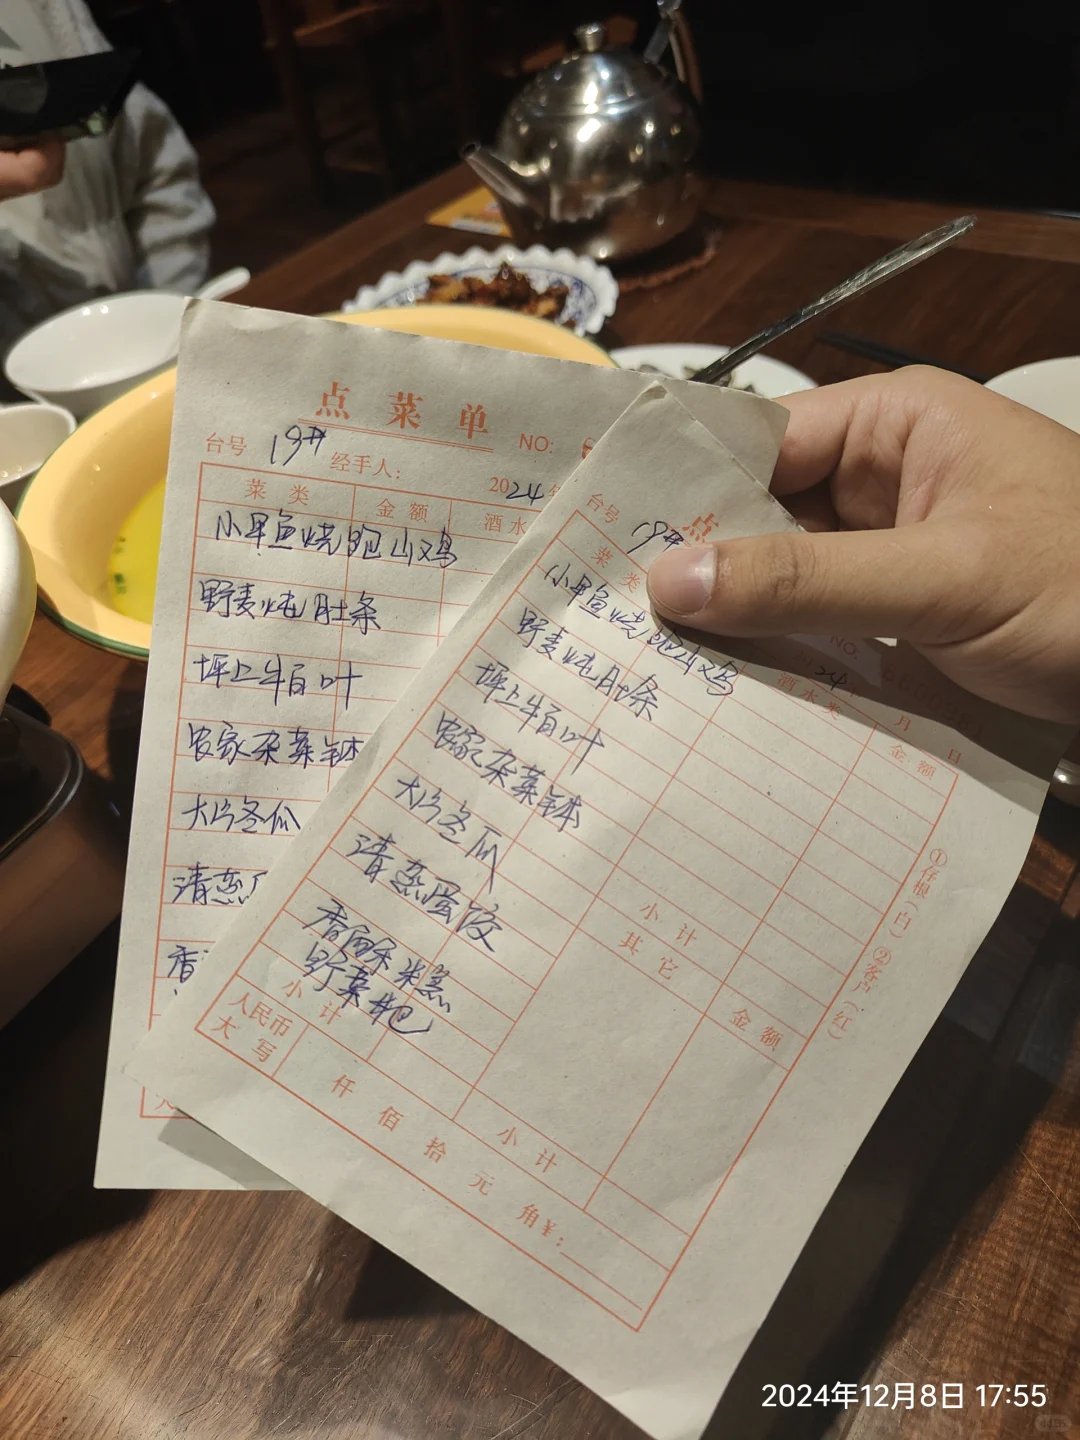 点菜单
台号 19# 经手人: NO:
2024
菜类 金额 酒水
小甲鱼烧跑山鸡
野麦炖肚条
坪上牛百叶
农家杂菜钵
大片冬瓜
清蒸
香
点
台号 19#
NO:
2024 月 日
菜类 酒水类 金额
小甲鱼烧跑山鸡
野麦炖肚条
坪上牛百叶
农家杂菜钵
大片冬瓜
清蒸蛋饺
香酥米糕
野菜粑
小计
其它
金额
小计
人民币
大写
仟佰拾元角¥:
小计
①存根(白)②客户(红)
2024年12月8日 17:55